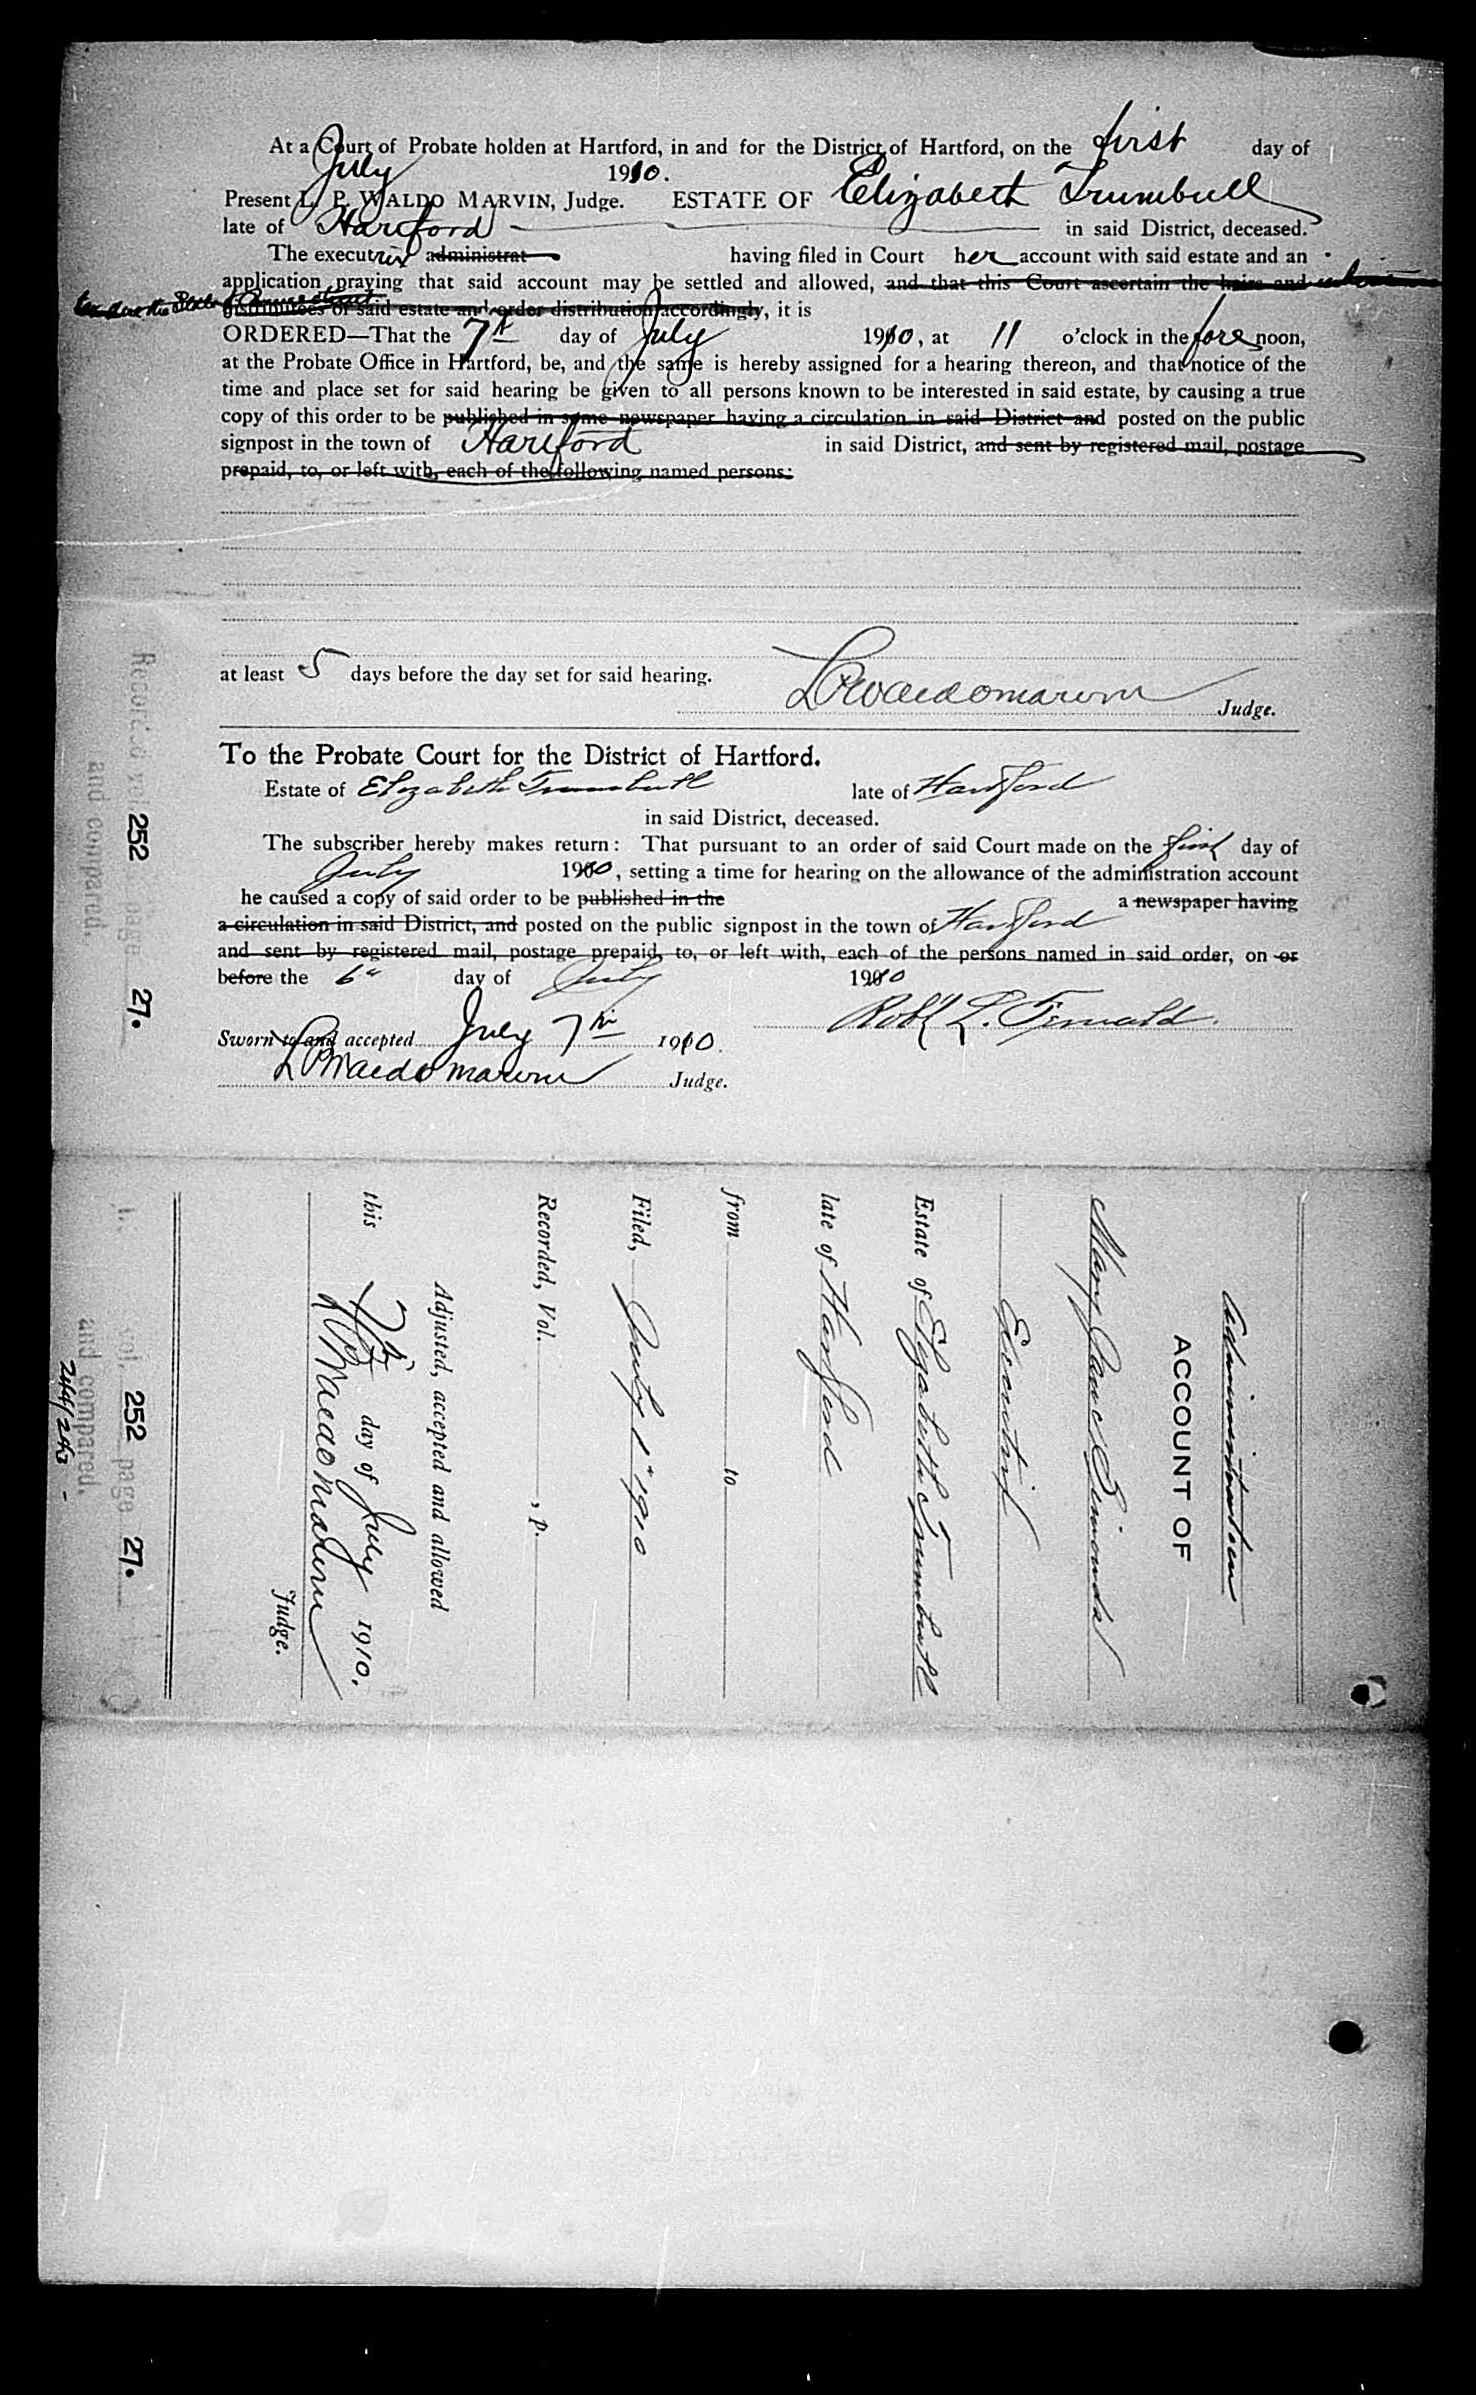 At a Court of Probate holden at Hartford, in and for the District of Hartford, on the first day of
July 1910.
Present L. P. WALDO MARVIN, Judge. ESTATE OF Elizabeth Trumbull
late of Hartford in said District, deceased.
The executrix administrat having filed in Court her account with said estate and an
application praying that said account may be settled and allowed, and that this Court ascertain the heirs and
tax due the State of Connecticut
distributees of said estate and order distribution accordingly, it is
ORDERED—That the 7th day of July 1910, at 11 o'clock in the fore noon,
at the Probate Office in Hartford, be, and the same is hereby assigned for a hearing thereon, and that notice of the
time and place set for said hearing be given to all persons known to be interested in said estate, by causing a true
copy of this order to be published in some newspaper having a circulation in said District and posted on the public
signpost in the town of Hartford in said District, and sent by registered mail, postage
prepaid, to, or left with, each of the following named persons:
at least 5 days before the day set for said hearing.
L P Waldo Marvin Judge.
To the Probate Court for the District of Hartford.
Estate of Elizabeth Trumbull late of Hartford
in said District, deceased.
The subscriber hereby makes return: That pursuant to an order of said Court made on the first day of
July 1910, setting a time for hearing on the allowance of the administration account
he caused a copy of said order to be published in the a newspaper having
a circulation in said District, and posted on the public signpost in the town of Hartford
and sent by registered mail, postage prepaid, to, or left with, each of the persons named in said order, on or
before the 6" day of July 1910
Robt L. Fernald.
Sworn to and accepted July 7th 1910.
L P Waldo Marvin Judge.
Record d vol. 252 page 27.
and compared.
Administration
ACCOUNT OF
Mary Simonds
Executrix
Estate of Elizabeth Trumbull
late of Hartford
from to
Filed, July 1" 1910
Recorded, Vol. , p.
Adjusted, accepted and allowed
this 7th day of July 1910.
L P Waldo Marvin
Judge.
vol. 252 page 27.
and compared.